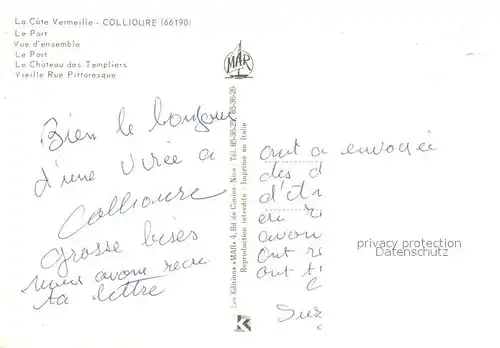 La Côte Vermeille - COLLIOURE (66190)
Le Port
Vue d'ensemble
Le Port
Le Château des Templiers
Vieille Rue Pittoresque
MAR
Bien le bonjour
d'une virée a
Collioure
grosse bises
nous avons recu
ta lettre
Les Editions «MAR» 4, Bd de Cimiez - Nice - Tél. 85-36-27, 85-36-20
Reproduction interdite - Imprimé en Italie
K
ont a envoyé
des d
d'et
en
avon
ont re
ont t
Suz
privacy protection
Datenschutz